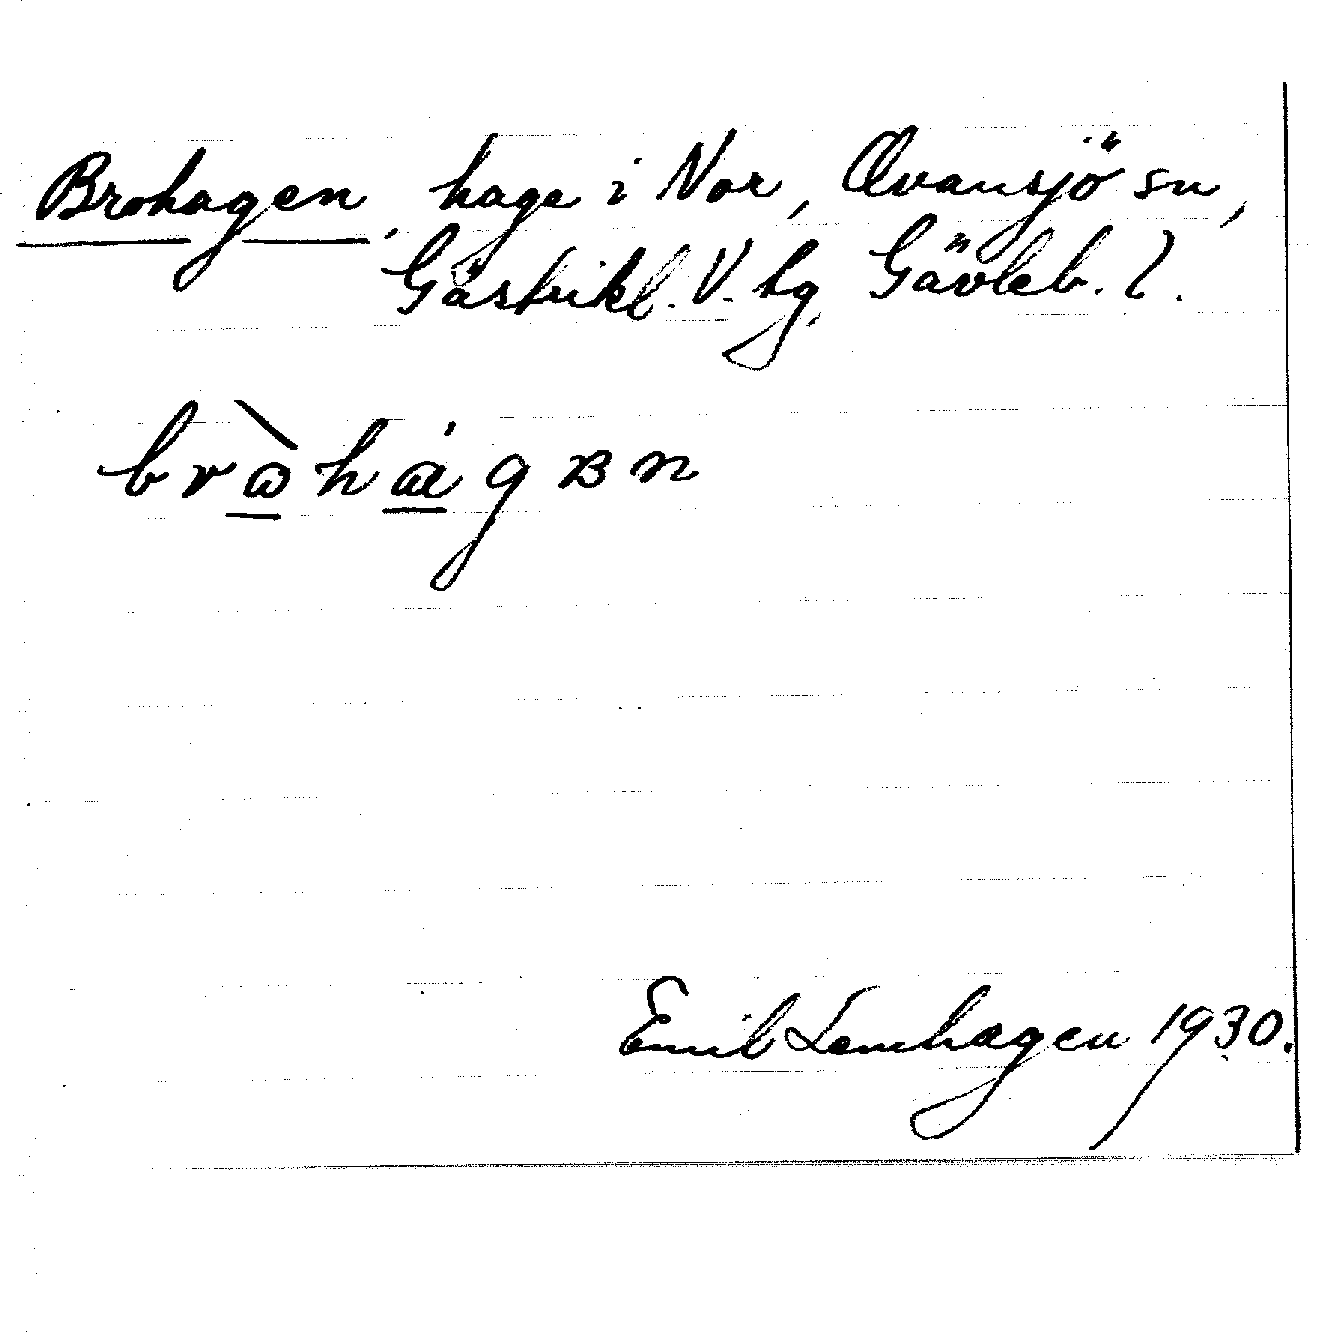 Brohagen, hage i Nor, Ovansjö sn,
Gästrikl. V. tg, Gävleb. l.
bròhágɐn
Emil Lemhagen 1930.